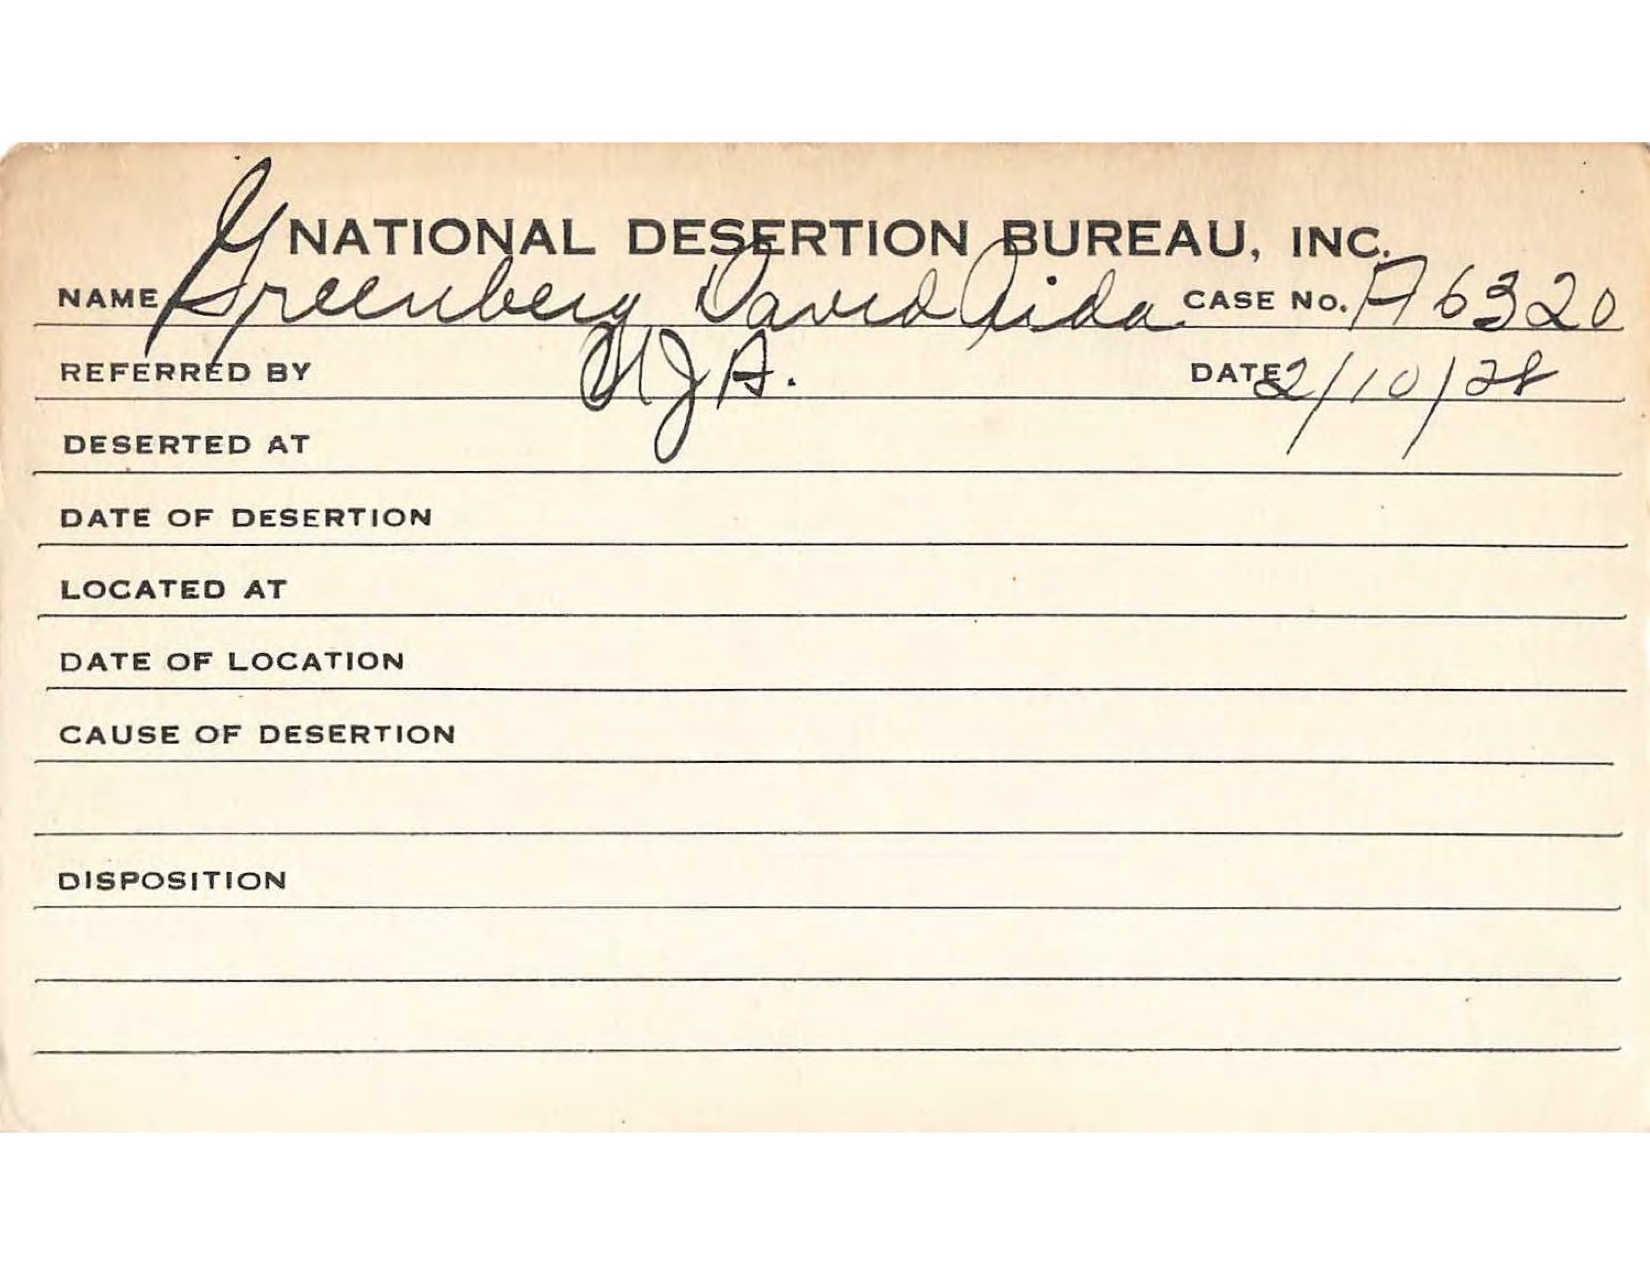 NATIONAL DESERTION BUREAU, INC.
NAME Greenberg David Aida CASE NO. A6320
REFERRED BY U J A. DATE 2/10/28
DESERTED AT
DATE OF DESERTION
LOCATED AT
DATE OF LOCATION
CAUSE OF DESERTION
DISPOSITION